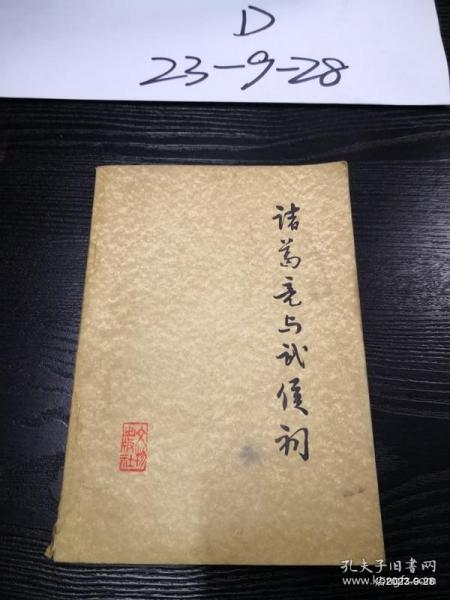 D
23-9-28
诸葛亮与武侯祠
文物
出版社
孔夫子旧书网
2023-9-28